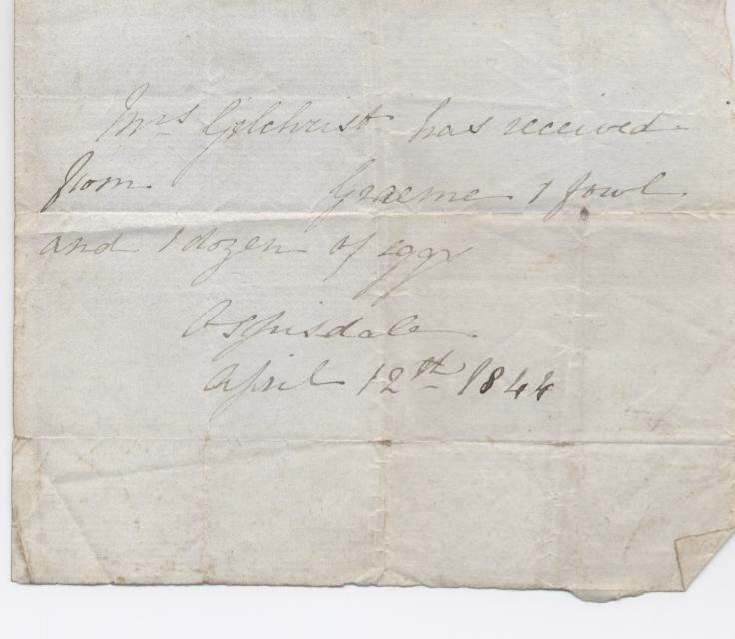 Mrs Gilchrist has received
from Graeme 1 fowl
and 1 dozen of eggs
Ospisdale
April 12th 1844